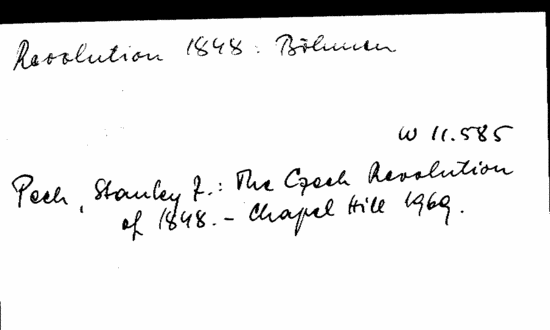 Revolution 1848: Böhmen
W 11.585
Pech, Stanley Z.: The Czech Revolution
of 1848. – Chapel Hill 1969.